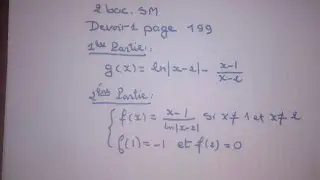 2 bac. SM
Devoir 1 page 199
1ère Partie:
g(x) = ln|x-2| - \frac{x-1}{x-2}
2ème Partie:
{ f(x) = \frac{x-1}{ln|x-2|} si x≠1 et x≠2
f(1) = -1 et f(2) = 0